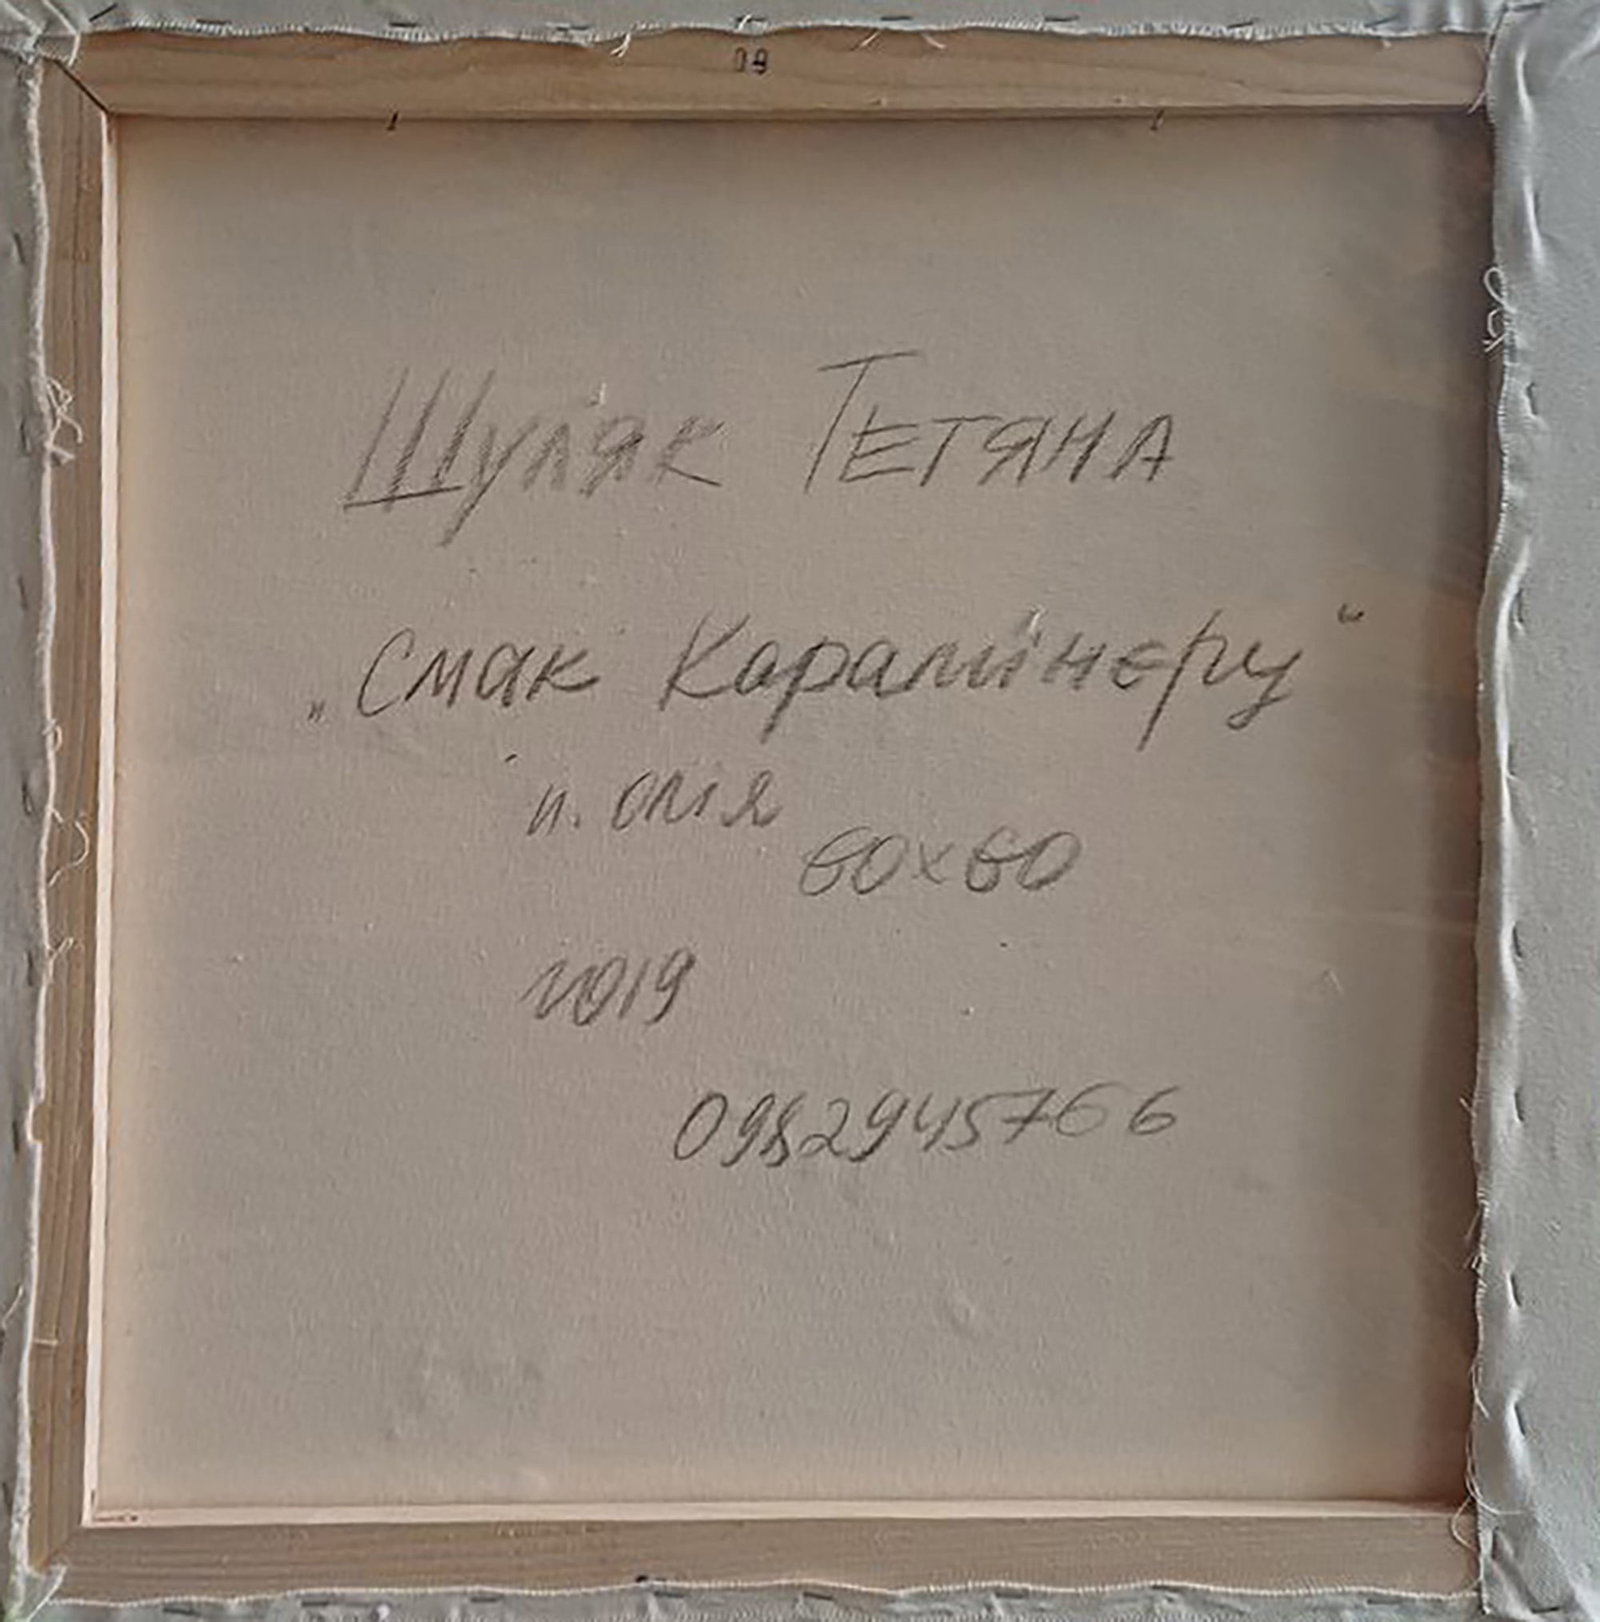 08
Шуляк Тетяна
„Смак Карамінєру“
п. олія
60х60
2019
0982945766